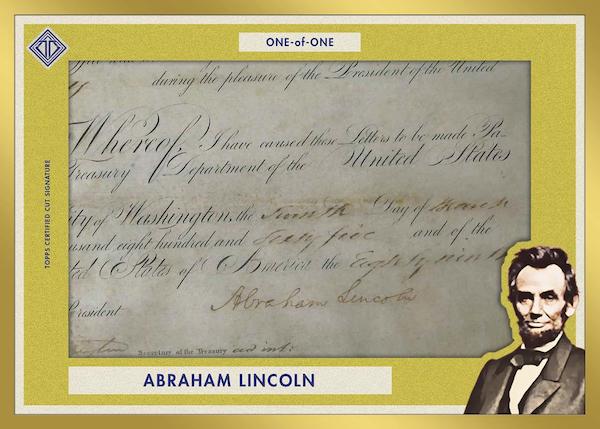 ONE-of-ONE
during the pleasure of the President of the United
Whereof, I have caused these Letters to be made Pa-
Treasury Department of the United States
City of Washington, the Day of March
usand eight hundred and Sixty five and of the
ted States of America the Eighty ninth
Abraham Lincoln
President
Secretary of the Treasury ad int:
TOPPS CERTIFIED CUT SIGNATURE
ABRAHAM LINCOLN